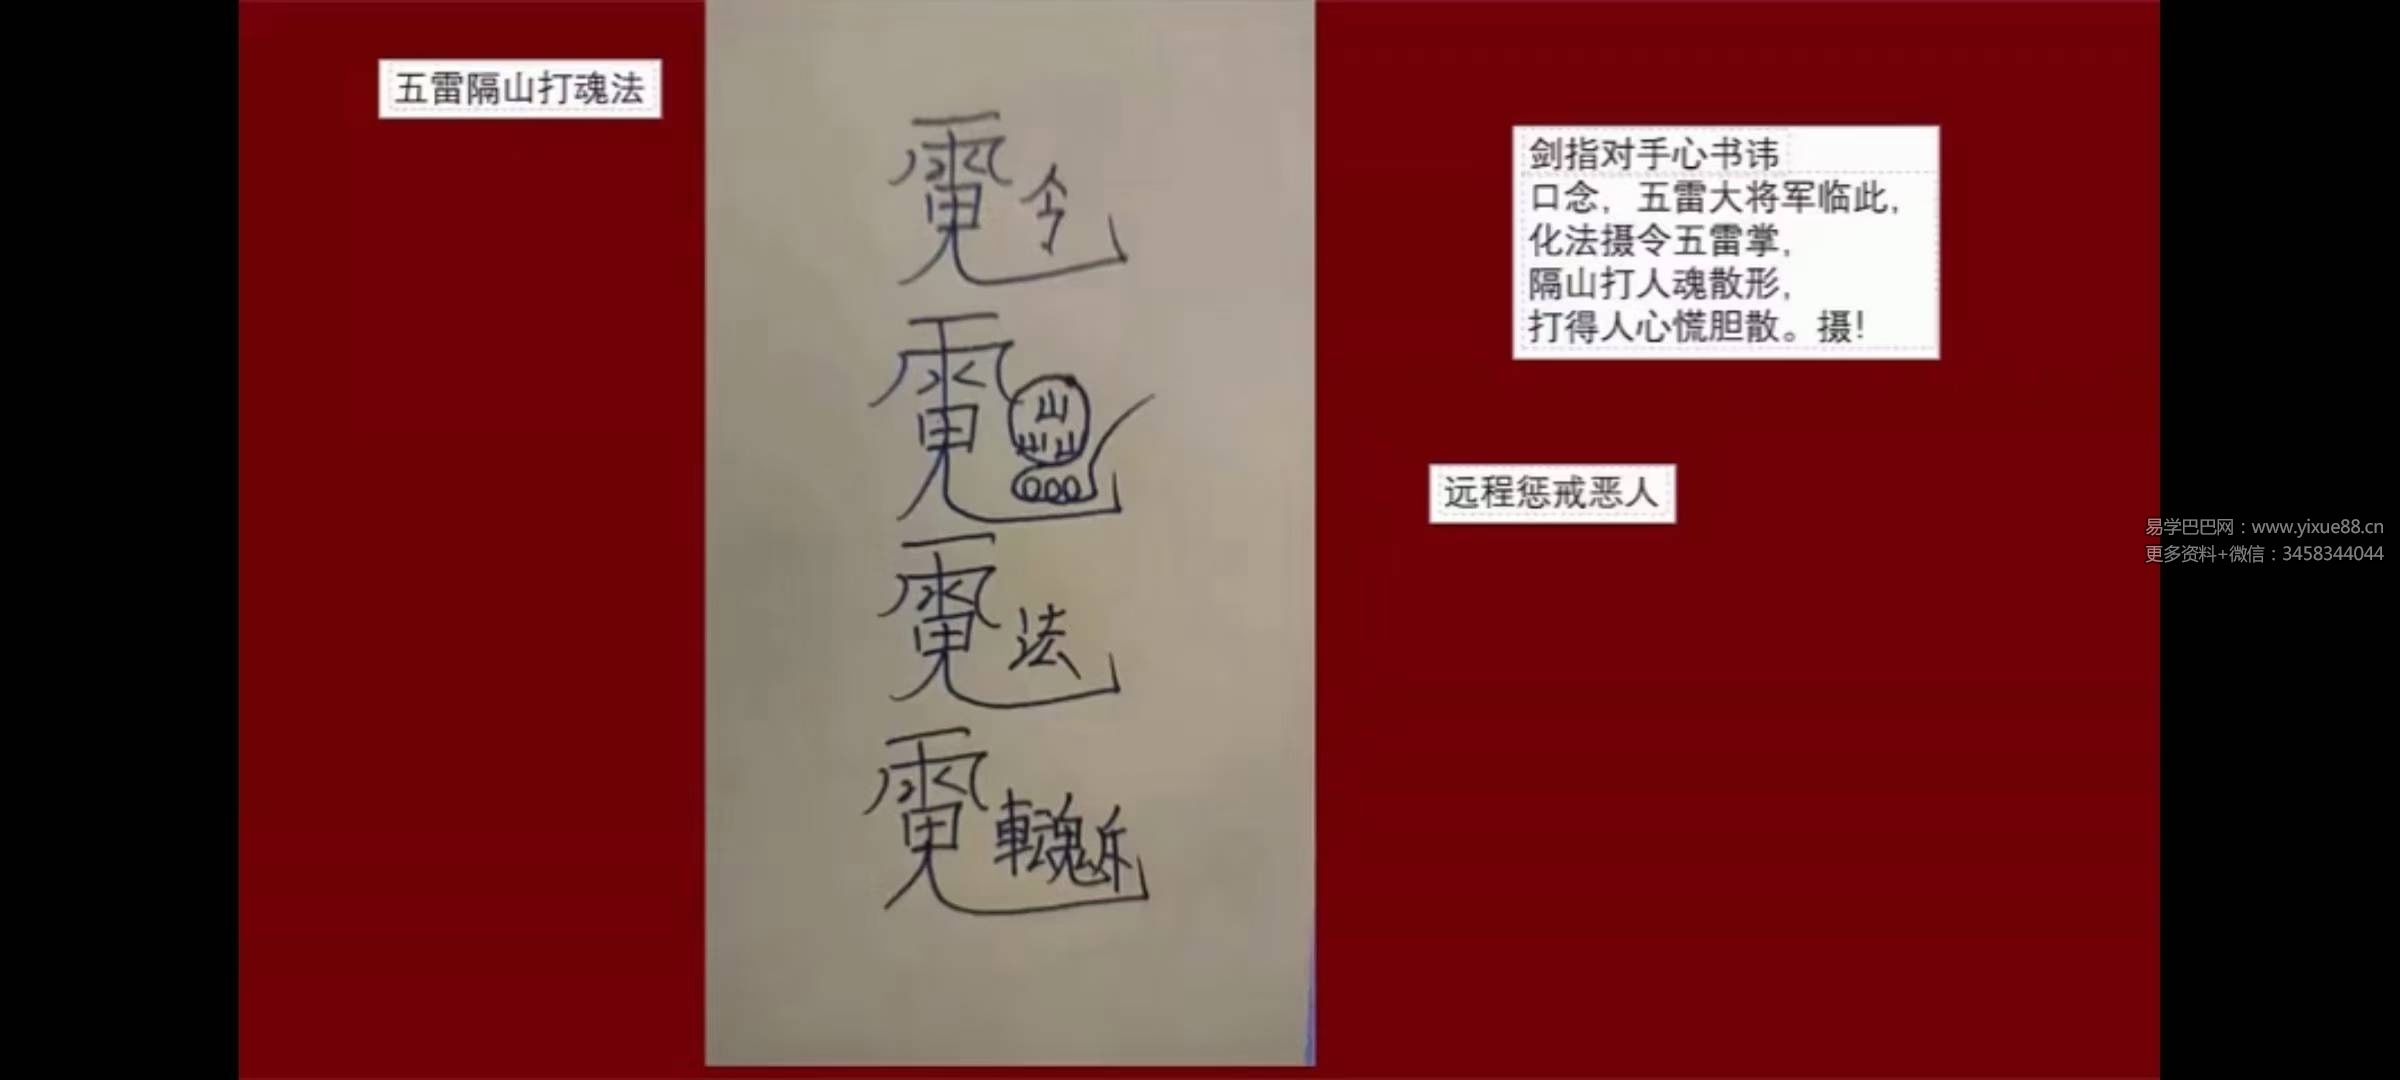 五雷隔山打魂法
令
山
山山
法
車魂斥
剑指对手心书讳
口念，五雷大将军临此，
化法摄令五雷掌，
隔山打人魂散形，
打得人心慌胆散。摄！
远程惩戒恶人
易学巴巴网：www.yixue88.cn
更多资料+微信：3458344044